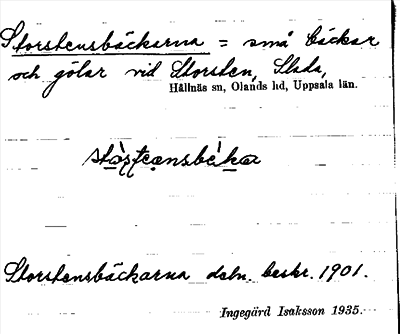 Storstensbäckarna = små bäckar
och gölar vid Storsten, Slada,
Hållnäs sn, Olands hd, Uppsala län.
Storstensbäckarna dabn. beskr. 1901.
Ingegärd Isaksson 1935.